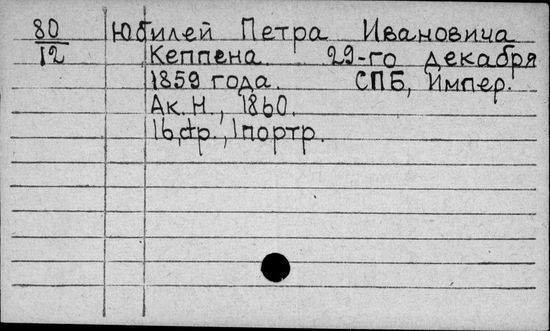 80 Юбилей Петра Ивановича
12 Кеппена. 29-го декабря
1859 года. СПБ, Импер.
Ак. Н., 1860.
1б,фр., 1портр.